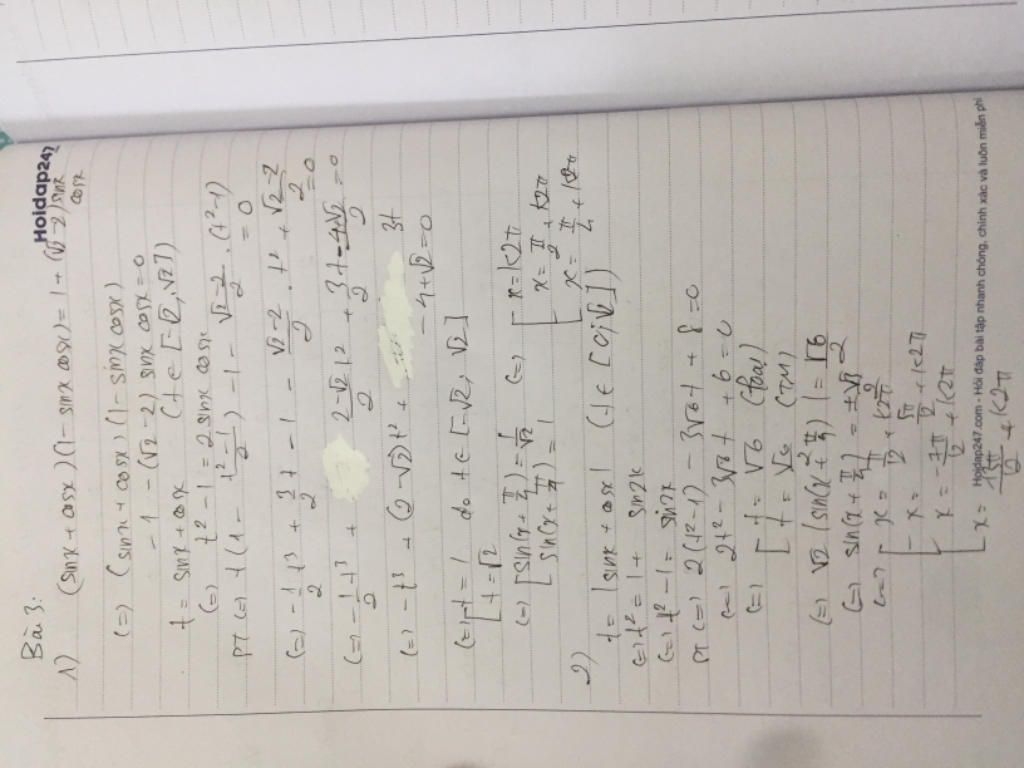 Hoidap247
Bài 3:
1) (sinx + cosx)(1 - sinx cosx) = 1 + (√2 - 2) sinx cosx
(=) (sinx + cosx)(1 - sinx cosx)
- 1 - (√2 - 2) sinx cosx = 0
t = sinx + cosx (t ∈ [-√2, √2])
(=) t² - 1 = 2 sinx cosx
PT (=) t(1 - (t² - 1)/2) - 1 - (√2 - 2)/2 . (t² - 1) = 0
(=) -1/2 t³ + 3/2 t - 1 - (√2 - 2)/2 . t² + (√2 - 2)/2 = 0
(=) -1/2 t³ + (2 - √2)/2 t² + 3/2 t - (4 + √2)/2 = 0
(=) - t³ + (2 - √2)t² + 3t - 4 + √2 = 0
(=) [ t = 1 do t ∈ [-√2, √2]
[ t = √2
(=) [ sin(x + π/4) = 1/√2 (=) [ x = k2π
[ sin(x + π/4) = 1 [ x = π/2 + k2π
[ x = π/4 + k2π
2) t = |sinx + cosx| (t ∈ [0; √2])
(=) t² = 1 + sin2x
(=) t² - 1 = sin2x
PT (=) 2(t² - 1) - 3√6 t + 8 = 0
(=) 2t² - 3√6 t + 6 = 0
(=) [ t = √6 (loại)
[ t = √6/2 (TM)
(=) √2 |sin(x + π/4)| = √6/2
(=) sin(x + π/4) = ±√3/2
(=) [ x = π/12 + k2π
[ x = 5π/12 + k2π
[ x = -7π/12 + k2π
[ x = 13π/12 + k2π
Hoidap247.com - Hỏi đáp bài tập nhanh chóng, chính xác và luôn miễn phí